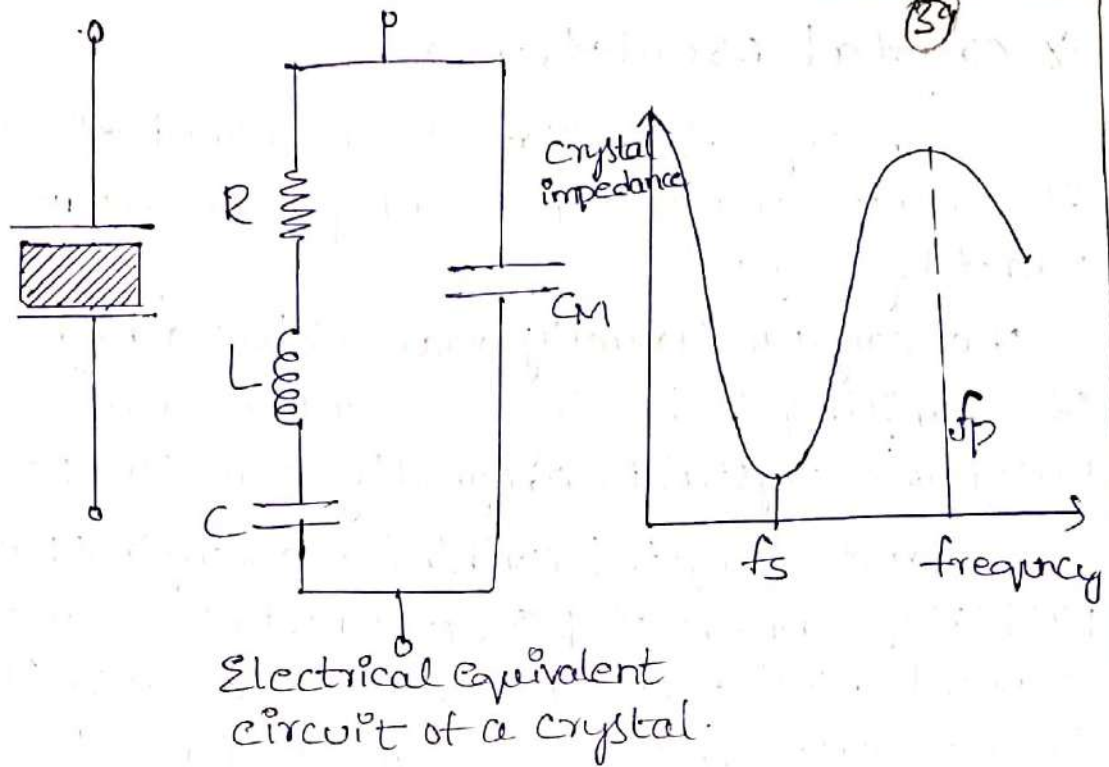 39
R
L
C
CM
Crystal
impedance
fs
fp
frequncy
Electrical equivalent
circuit of a crystal.